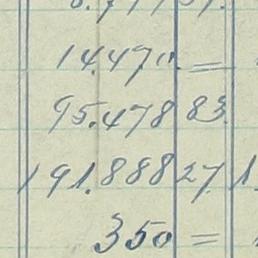 14.470 =
95.478 83
191.888 27 1.
350 =